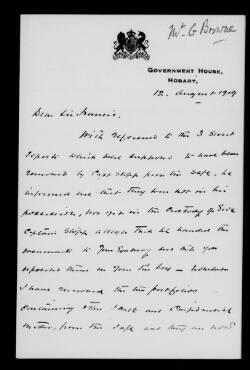 Mr G Browne
GOVERNMENT HOUSE,
HOBART.
12. August 1919
Dear Sir Francis.
With reference to the 3 Secret
reports which were supposed to have been
removed by Capt from the safe, he
informed me that they were not in his
possession, nor yet in the custody of
Captain alleges that he handed the
documents to Your and that you
deposited them in
I have removed the two portfolios
containing other and Confidential
matter, from the safe and they are now